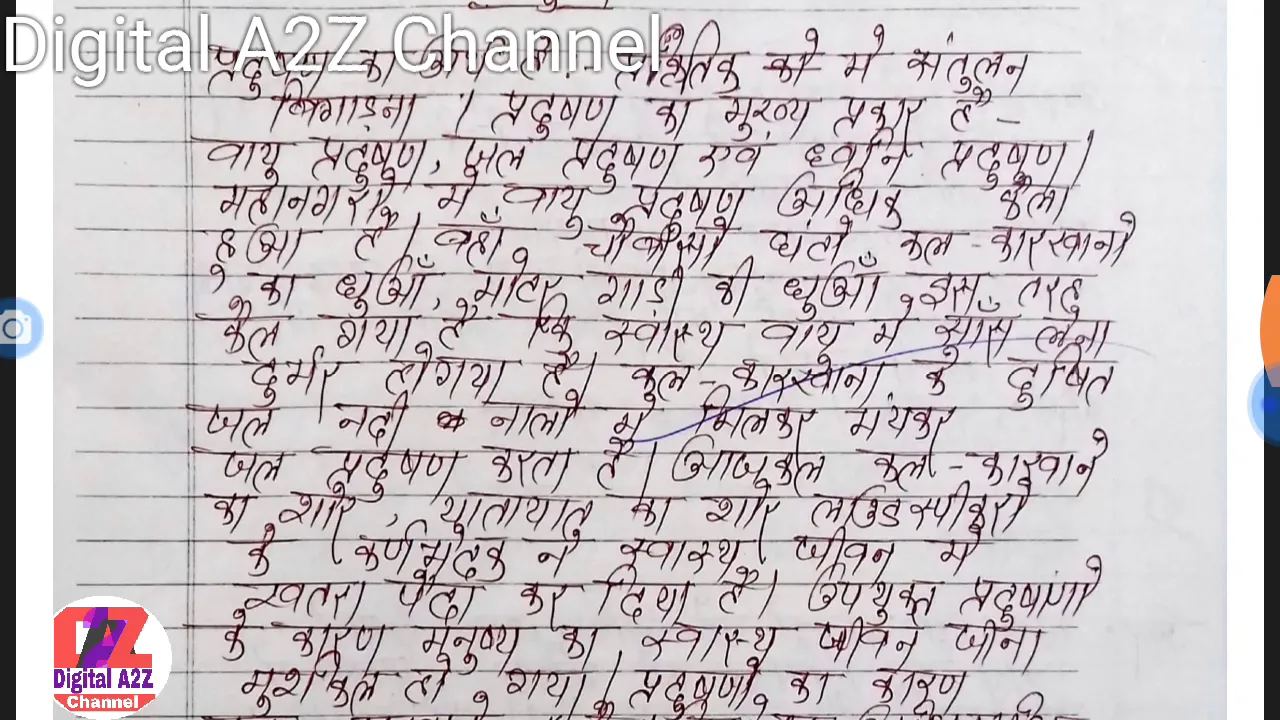 Digital A2Z Channel
प्रदुषण का अर्थ है :- प्राकृतिक को मे संतुलन
बिगाड़ना । प्रदुषण का मुख्य प्रकार है -
वायु प्रदुषण, जल प्रदुषण एवं ध्वनि प्रदुषण।
महानगरों में वायु प्रदुषण अधिक फैला
हुआ है। वहाँ चौबीसो घंटो कल - कारखानो
का धुआँ, मोटर गाड़ी की धुआँ इस तरह
फैल गया है कि स्वास्थ वायु मे साँस लेना
दुर्भर होगया है। कुल - कारखाना के दुषित
जल नदी नालो में मिलकर भंयकर
जल प्रदुषण करता है। आजकल कल - कारखाने
का शोर, यातायात का शोर लउडिस्पीकरो
के कर्णभेदक ने स्वास्थ जीवन मे
खतरा पैदा कर दिया है। उपयुक्त प्रदुषणो
के कारण मनुष्य का स्वास्थ जीवन जीना
मुशकिल हो गया। प्रदुषणो का कारण
Digital A2Z
Channel